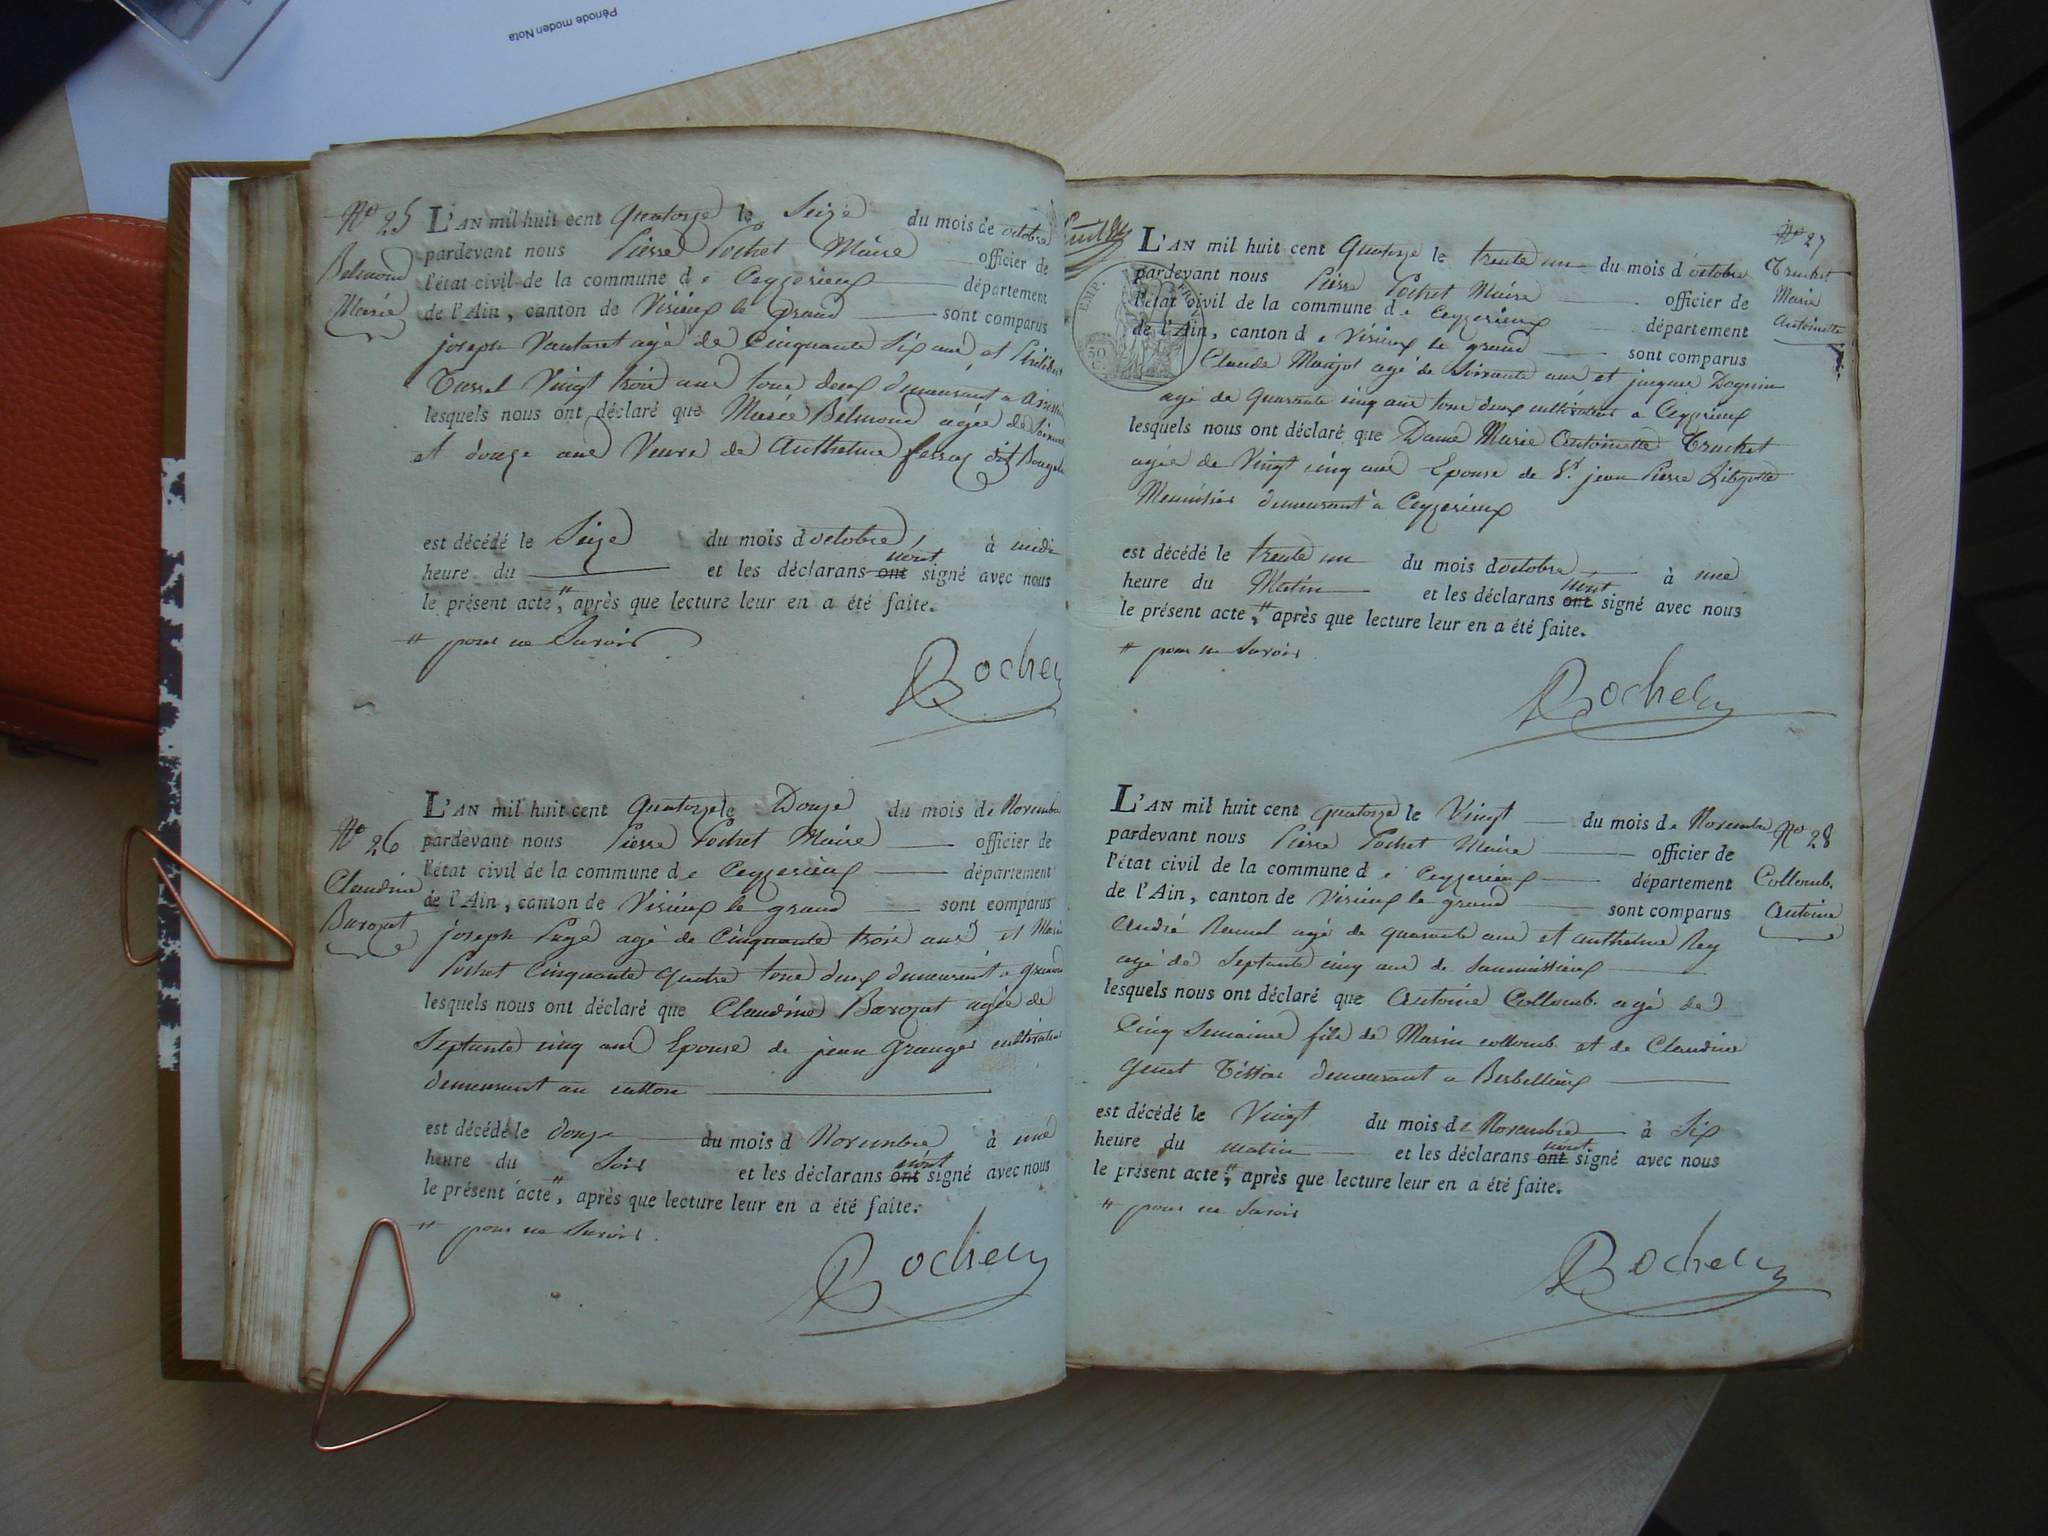 Période moden Nota
No 25
Belmond
Marie
L'AN mil huit cent quatorze le Seize du mois de octobre
pardevant nous Pierre Pochet Maire officier de
l'état civil de la commune de Ceyzerieux département
de l'Ain, canton de Virieux le grand sont comparus
joseph Vautaret agé de Cinquante Six ans et
Vingt trois ans tous deux demeurant a
lesquels nous ont déclaré que Marie Belmond agée de
et douze ans Veuve de Anthelme ferraz dit
est décédé le Seize du mois d octobre à midi
heure du et les déclarans ont n'ont signé avec nous
le présent acte," après que lecture leur en a été faite.
" pour ne Savoir
Pochet
No 26
Claudine
Barozat
L'AN mil huit cent quatorze le Douze du mois de Novembre
pardevant nous Pierre Pochet Maire officier de
l'état civil de la commune de Ceyzerieux département
de l'Ain, canton de Virieux le grand sont comparus
joseph Page agé de Cinquante trois ans et Marin
Pochet Cinquante quatre tous deux demeurant a
lesquels nous ont déclaré que Claudine Barozat agée de
Septante cinq ans Epouse de jean Granger cultivateur
demeurant au
est décédé le douze du mois d Novembre à une
heure du Soir et les déclarans ont n'ont signé avec nous
le présent acte", après que lecture leur en a été faite.
" pour ne Savoir.
Pochet
EMP. FRANÇ.
50
No 27
Truchet
Marie
Antoinette
L'AN mil huit cent Quatorze le trente un du mois d'octobre
pardevant nous Pierre Pochet Maire officier de
l'état civil de la commune de Ceyzerieux département
de l'Ain, canton de Virieux le grand sont comparus
Claude Manjot agé de Soixante ans et jacques Doguin
agé de Quarante cinq ans tous deux cultivateurs a Ceyzerieux
lesquels nous ont déclaré que Dame Marie Antoinette Truchet
agée de Vingt cinq ans Epouse de Sr. jean Pierre
Menuisier demeurant à Ceyzerieux
est décédé le trente un du mois d octobre à une
heure du Matin et les déclarans ont n'ont signé avec nous
le présent acte," après que lecture leur en a été faite.
" pour ne Savoir.
Pochet
No 28
Collomb.
Antoine
L'AN mil huit cent quatorze le Vingt du mois de Novembre
pardevant nous Pierre Pochet Maire officier de
l'état civil de la commune de Ceyzerieux département
de l'Ain, canton de Virieux le grand sont comparus
André Reumal agé de quarante ans et anthelme Rey
agé de Septante cinq ans de
lesquels nous ont déclaré que Antoine Collomb. agé de
Cinq Semaines fils de Marin collomb. et de Claudine
demeurant a
est décédé le Vingt du mois de Novembre à Six
heure du matin et les déclarans ont n'ont signé avec nous
le présent acte," après que lecture leur en a été faite.
" pour ne Savoir
Pochet